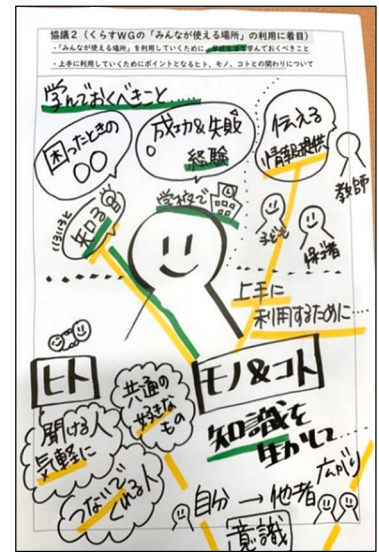 協議２（くらすWGの「みんなが使える場所」の利用に着目）
・「みんなが使える場所」を利用していくために、学校生活で学んでおくべきこと
・上手に利用していくためにポイントとなるヒト、モノ、コトとの関わりについて
学んでおくべきこと……
困ったときの
〇〇
成功&失敗
経験
伝える
情報提供
教師
いろいろと
知る
学校で
子ども
保護者
上手に
利用するために…
ヒト
共通の
好きな
もの
モノ&コト
聞ける人
気軽に
知識を
生かして……
つないで
くれる人
広がり
自分 → 他者
意識